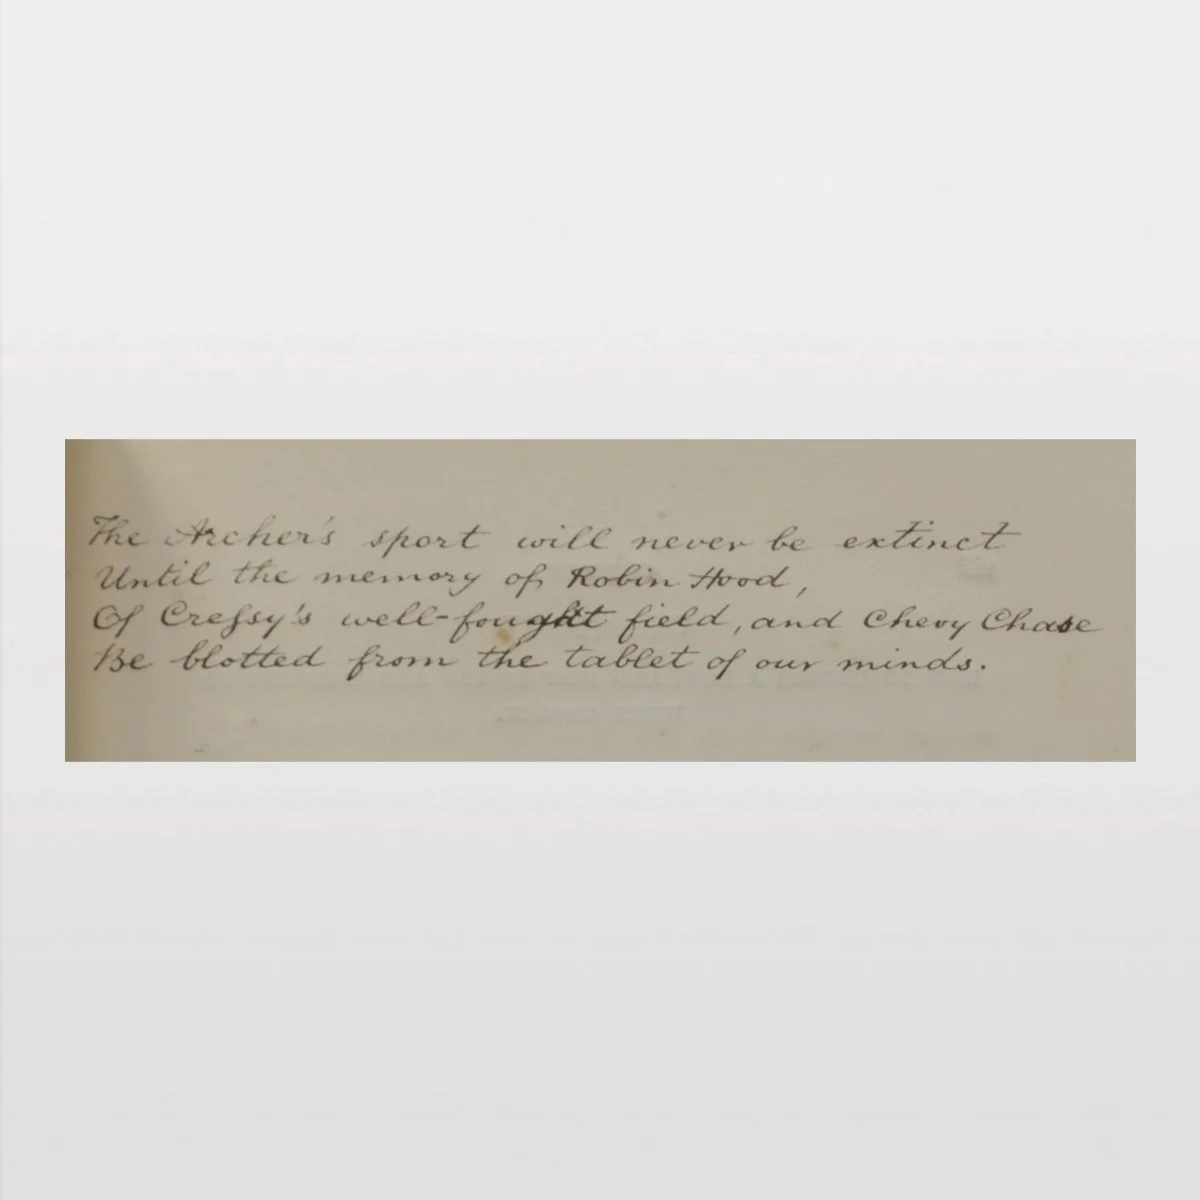 The Archer's sport will never be extinct
Until the memory of Robin Hood,
Of Creſsy's well-fought field, and Chevy Chase
Be blotted from the tablet of our minds.